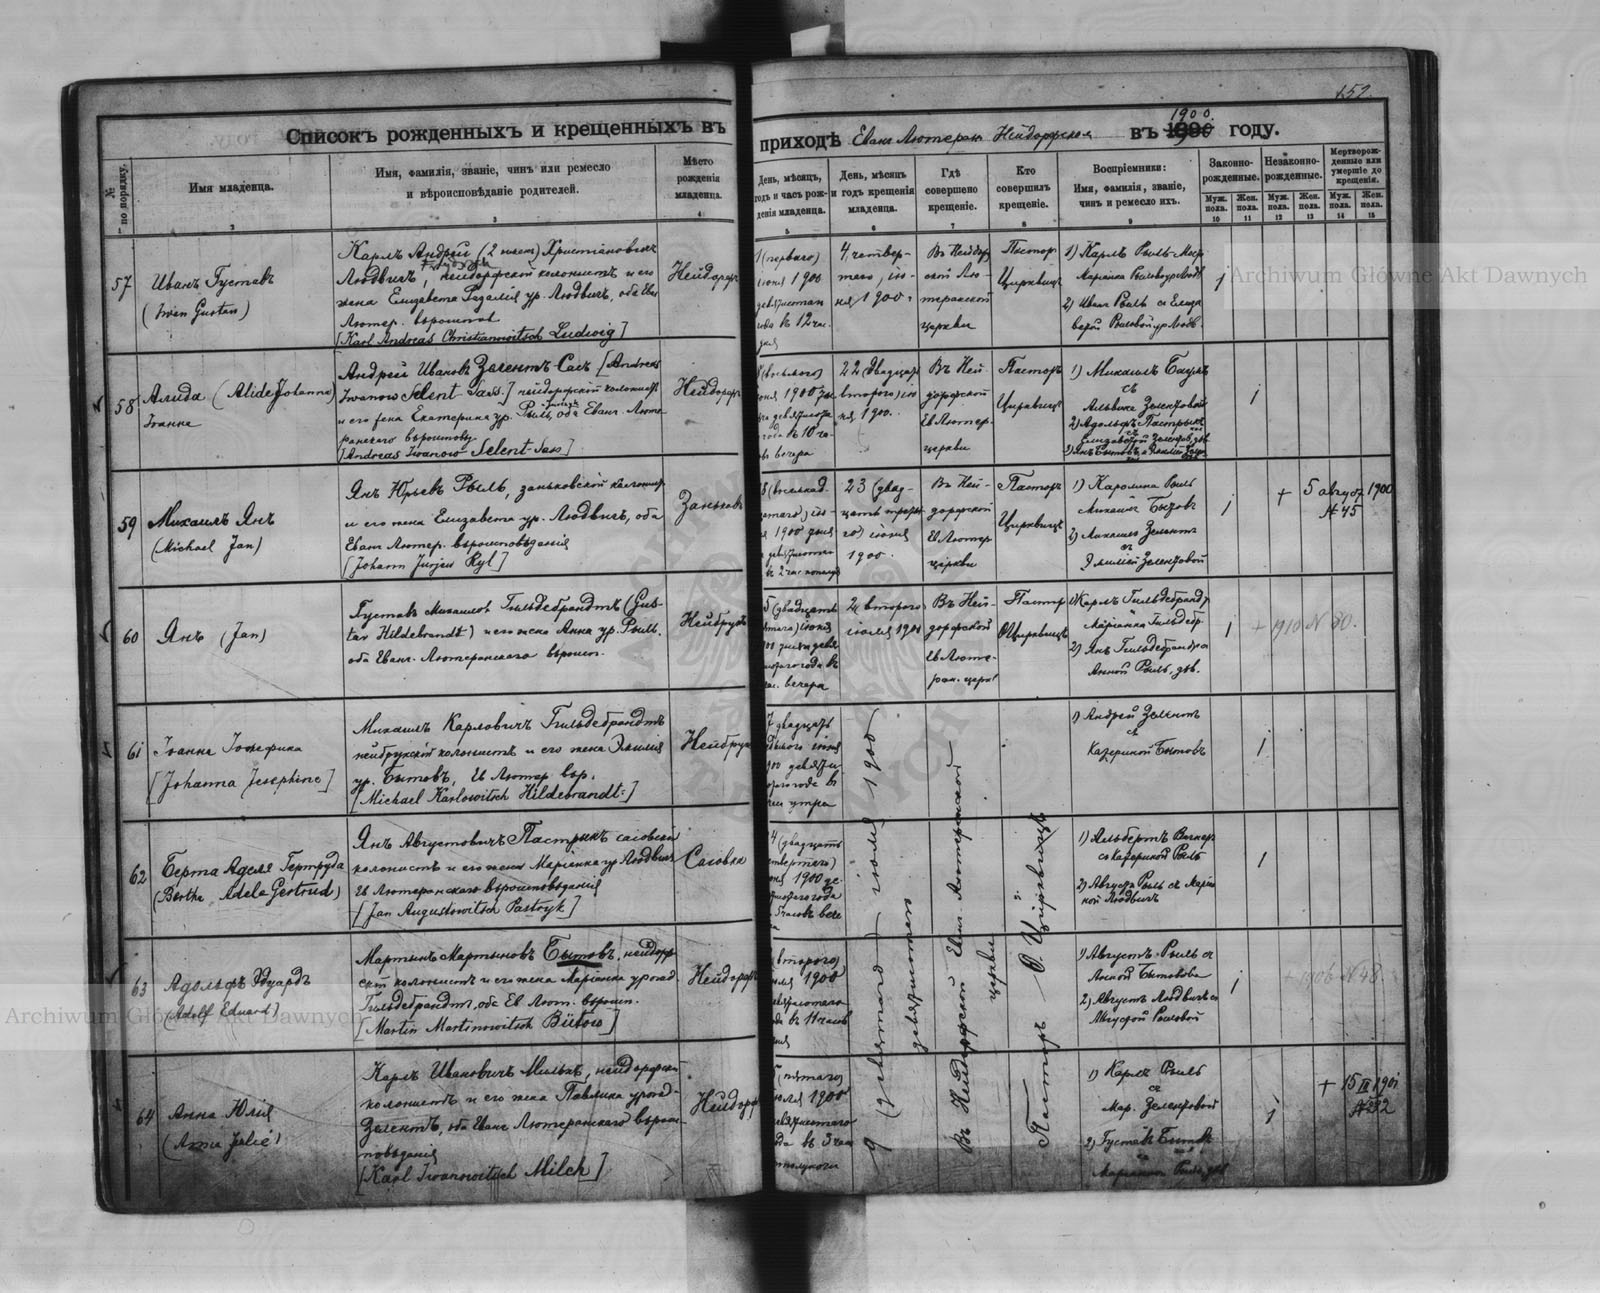 152.
Списокъ рожденныхъ и крещенныхъ въ приходѣ Еванг Лютеран Нейдорфском въ 1900 году.
№ по порядку.
Имя младенца.
Имя, фамилія, званіе, чинъ или ремесло
и вѣроисповѣданіе родителей.
Мѣсто
рожденія
младенца.
День, мѣсяцъ,
годъ и часъ рож-
денія младенца.
День, мѣсяцъ
и годъ крещенія
младенца.
Гдѣ
совершено
крещеніе.
Кто
совершилъ
крещеніе.
Воспріемники:
Имя, фамилія, званіе,
чинъ и ремесло ихъ.
Законно-
рожденные.
Незаконно-
рожденные.
Мертворож-
денные или
умершіе до
крещенія.
Муж. пола.
Жен. пола.
Муж. пола.
Жен. пола.
Муж. пола.
Жен. пола.
1 2 3 4 5 6 7 8 9 10 11 12 13 14 15
57
Иванъ Густавъ
(Iwan Gustav)
Карлъ Андрей (2 имен) Христіановичъ
Людвигъ, нейдорфскій колонистъ и его
жена Елизавета Розалія ур. Людвигъ, оба Еван
Лютер. вѣроиспов
[Karl Andreas Christianowitsch Ludwig]
Нейдорфъ
1 (перваго)
іюня 1900
года въ 12 час.
дня
4 четвер-
таго, ію-
ня 1900.
Въ Нейдор
ской Лю-
теранской
церкви
Пастор
Цирквицъ
1) Карлъ Рыль
2) Иванъ Рыль съ Елиза
ветой Рылевой ур Людв.
1
58
Алида (Alide Johanna)
Іоанна
Андрей Ивановъ Зелентъ-Сасъ [Andreas
Iwanow Selent Sass.] нейдорфскій колонистъ
и его жена Екатерина ур. Рыль, оба Еванг. Люте
ранскаго вѣроисповѣд.
[Andreas Iwanow Selent-Sass]
Нейдорфъ
іюня 1900
въ 10 ча-
въ вечера
22 двадцат
второго, ію
ня 1900.
Въ Ней
дорфской
Ев Лютер.
церкви
Пасторъ
Цирквицъ
1) Михаилъ Баумъ
съ
Альвине Зелентовой
2) Адольфъ Пастрыкъ
съ
Елизаветой Зелентов. дѣв.
1
59
Михаилъ Янъ
(Michael Jan)
Янъ Юрьевъ Рыль, заньковскій колонист
и его жена Елизавета ур. Людвигъ, оба
Еванг Лютер. вѣроисповѣданія
[Johann Jurjew Ryl]
Заньковъ
1900 дня
въ 2 час
23 (двад-
цать треть
го) іюня
1900.
Въ Ней-
дорфской
Ев Лютер
церкви
Пасторъ
Цирквицъ
1) Каролина Рыль
Михаилъ Бытовъ
2) Михаилъ Зелентъ
съ
Эмиліей Зелентовой
1
+ 5 август 1900
№ 45
60
Янъ (Jan)
Густавъ Михаиловъ Гильдебрандтъ (Gus-
tav Hildebrandt) и его жена Анна ур. Рыль.
оба Еванг. Лютеранскаго вѣроисп.
Нейбрувъ
5 (двадцать
пятаго) іюня
вечера
2 (второго
іюля 1900
Въ Ней-
дорфской
Ев Люте-
ран. церк
Пастор
Цирквицъ
1) Карлъ Гильдебрандт
Маріанна Гильдебр
2) Янъ Гильдебрандтъ
Анной Рыль, дѣв.
1
+ 1910 № 30.
61
Іоанна Іозефина
[Johanna Josephine]
Михаилъ Карловичъ Гильдебрандтъ
нейбрувскій колонистъ и его жена Эмилія
ур. Бытовъ, Ев Лютер. вѣр.
[Michael Karlowitsch Hildebrandt]
Нейбрувъ
7 двадцать
седьмого іюня
утра
1) Андрей Зелентъ
съ
Катериной Бытовъ
1
62
Берта Аделя Гертруда
(Bertha Adela Gertrud)
Янъ Августовичъ Пастрыкъ саговскій
колонистъ и его жена Маріанна ур Людвигъ
Ев Лютеранскаго вѣроисповѣданія
[Jan Augustowitsch Pastryk]
Саговка
4 (двадцать
четвертаго)
іюня 1900 де-
вятисотаго года
1) Альбертъ Вагнеръ
съ Катериной Рыль
2) Августъ Рыль съ Маріан
ной Людвигъ
1
63
Адольфъ Эдуардъ
(Adolf Eduard)
Мартынъ Мартыновъ Бытовъ, нейдорф
скій колонистъ и его жена Маріанна урожд
Гильдебрандтъ, оба Ев Лют. вѣроисп.
[Martin Martinowitsch Bütow]
Нейдорфъ
(второго)
іюля 1900
въ 11 часов
1) Августъ Рыль съ
Анной Бытовова
2) Августъ Людвигъ съ
Августой Рылевой
1
+ 1906 № 48.
64
Анна Юлія
(Anna Julie)
Карлъ Ивановичъ Мильхъ, нейдорфскій
колонистъ и его жена Павлина урожд.
Зелентъ, оба Еванг Лютеранскаго вѣроис-
повѣданія
[Karl Iwanowitsch Milch]
Нейдорф
(пятаго)
іюля 1900
девятисотаго
года въ 3 часа
1) Карлъ Рыль
съ
Мар. Зелентовой
2) Густавъ Бытовъ
съ
Маріанной Рыль, дѣв
1
+ 15 IX 1901
№ 232
9 (девятаго) іюля 1900
девятисотаго
Въ Нейдорфской Еванг Лютеранской
церкви
Пасторъ О. Цирквицъ
Archiwum Główne Akt Dawnych
Archiwum Główne Akt Dawnych